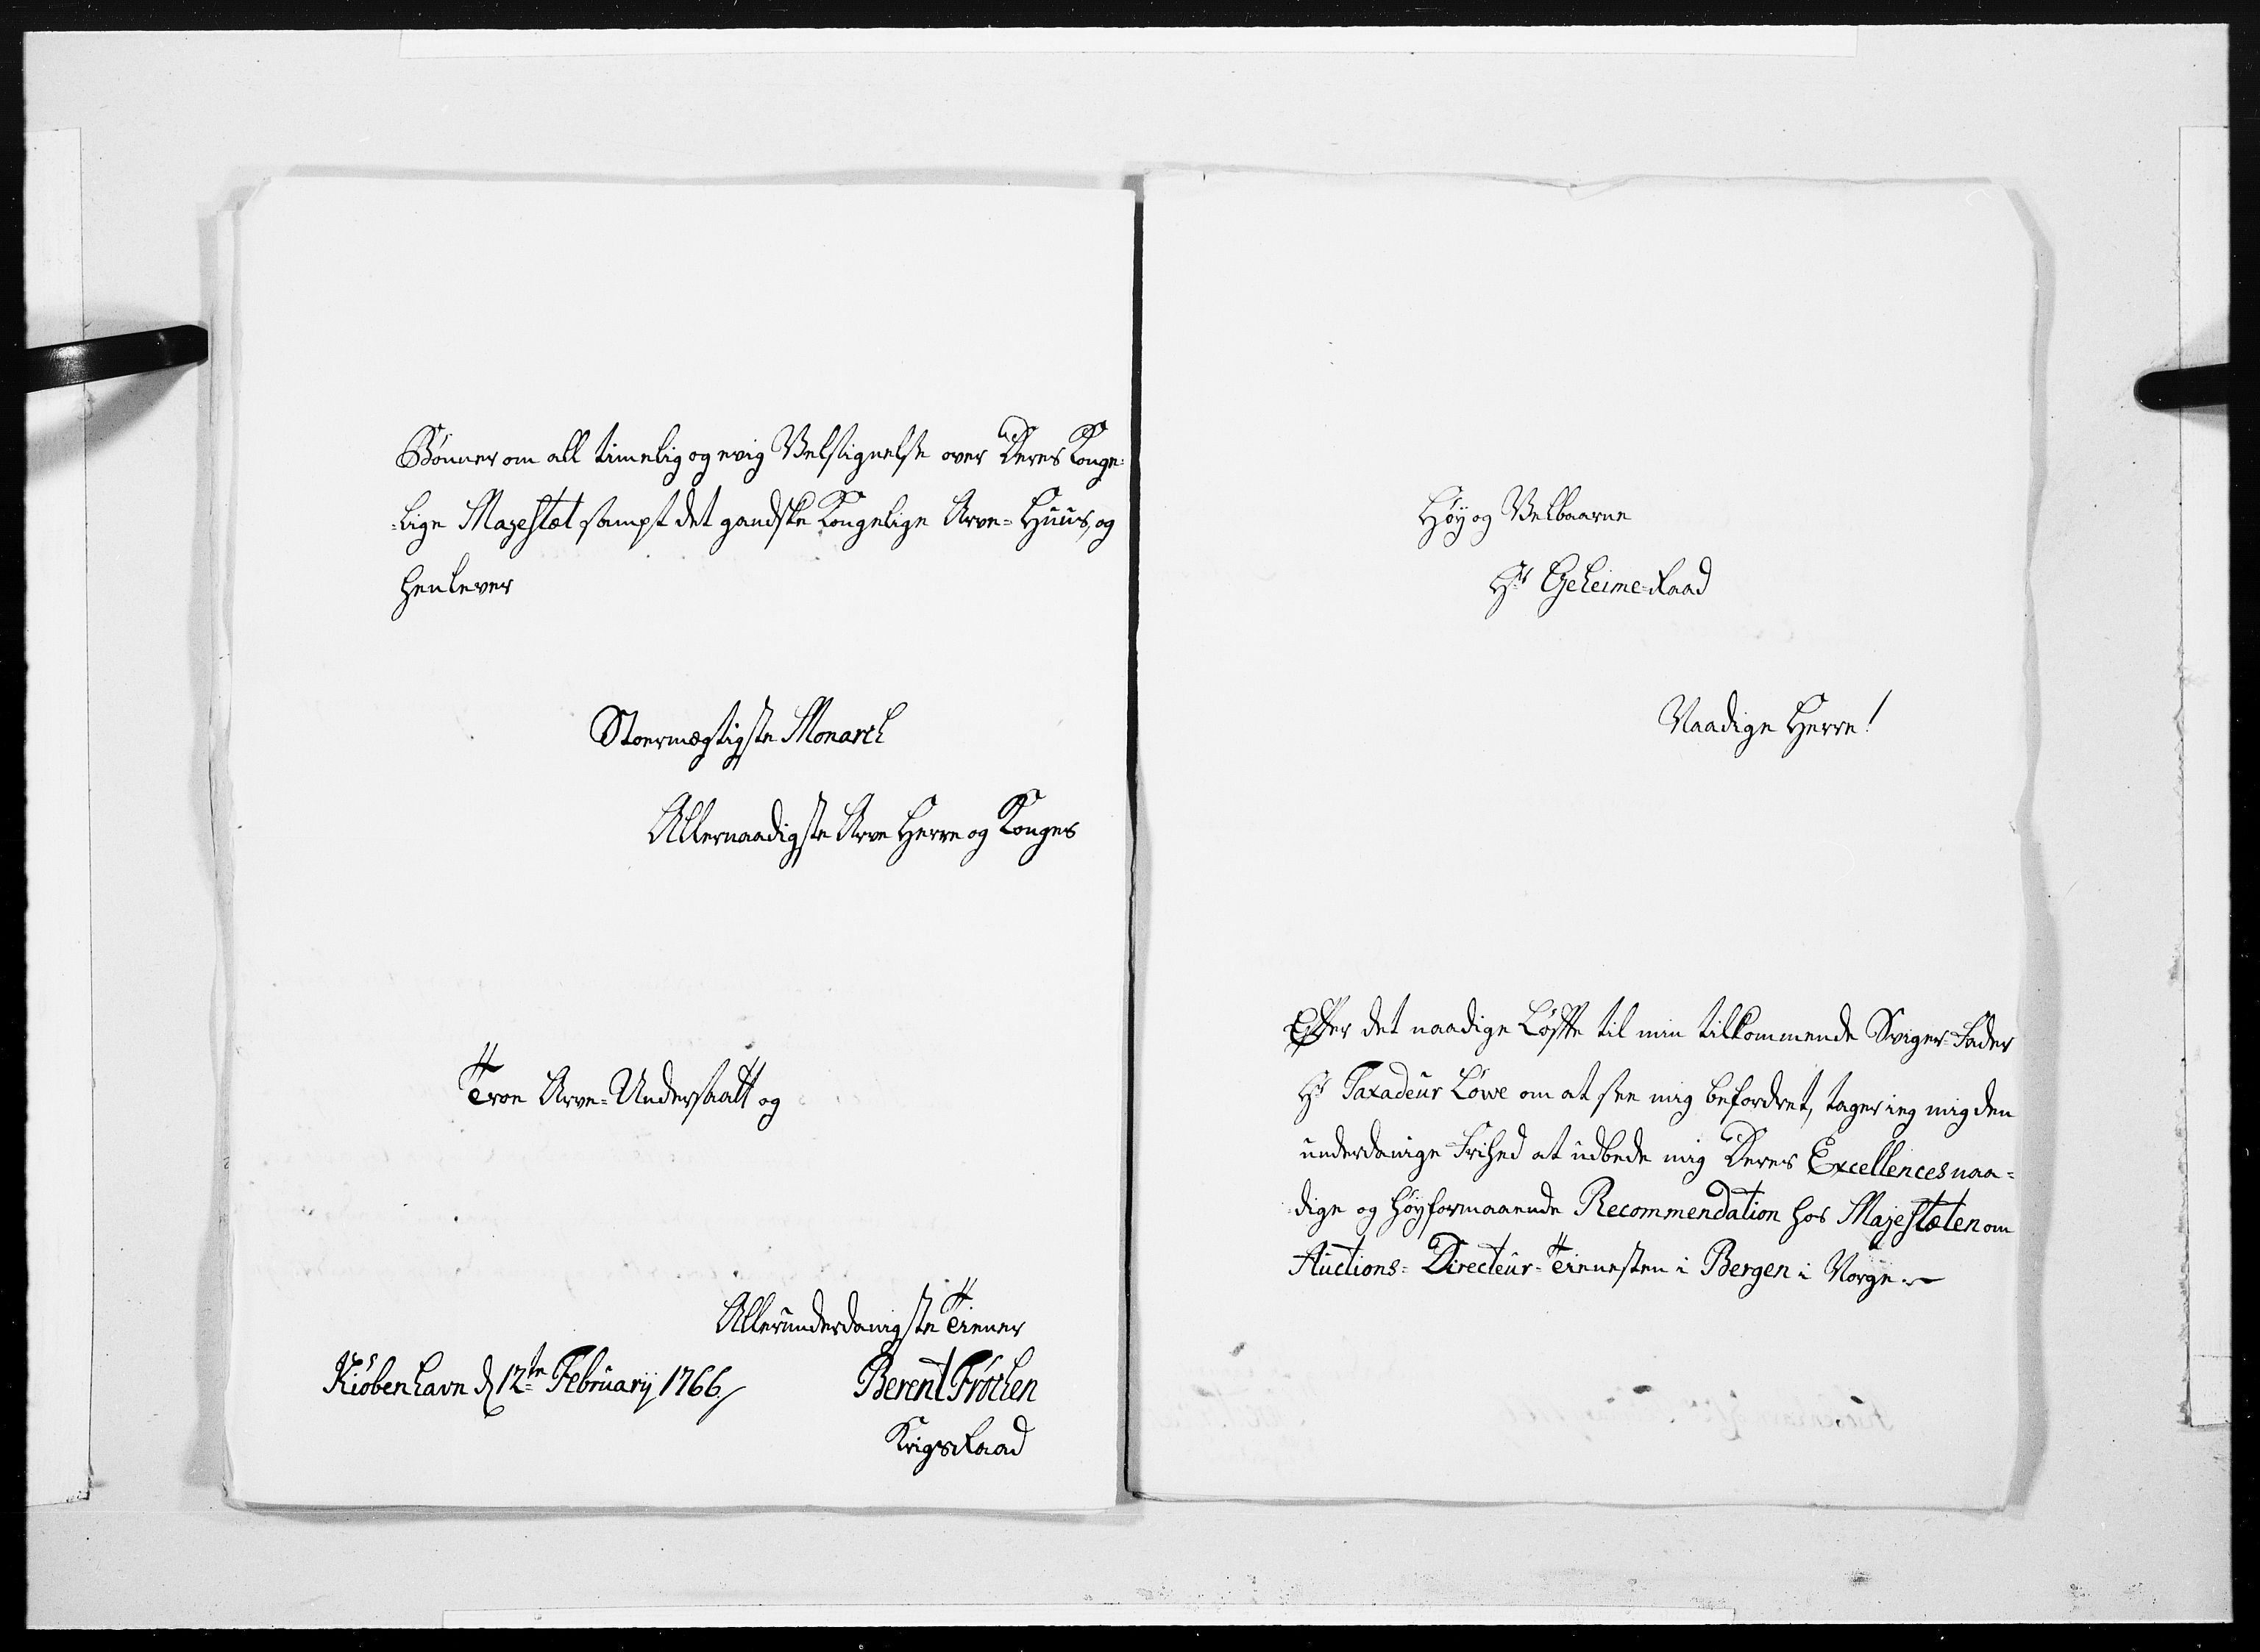 Bønner om all timelig og evig Velsignelse over Deres Konge-
-lige Majestæt sampt det gandske Kongelige Arve-Huus, og
henlever
Stoermægtigste Monarch
Allernaadigste Arve Herre og Konges
Troe Arve-Undersaatt og
Allerunderdanigste Tiener
Kiöbenhavn d 12te Februarij 1766
Berent Fröchen
KrigsRaad
Høy og Velbaarne
Hr Geheime-Raad
Naadige Herre!
Efter det naadige Løfte til min tilkommende Sviger-Fader
Hr Taxadeur Löwe om at see mig befordret, tager ieg mig den
underdanige Frihed at udbede mig Deres Excellences naa-
dige og høyformaaende Recommendation hos Majestæten om
Auctions-Directeur-Tienesten i Bergen i Norge.